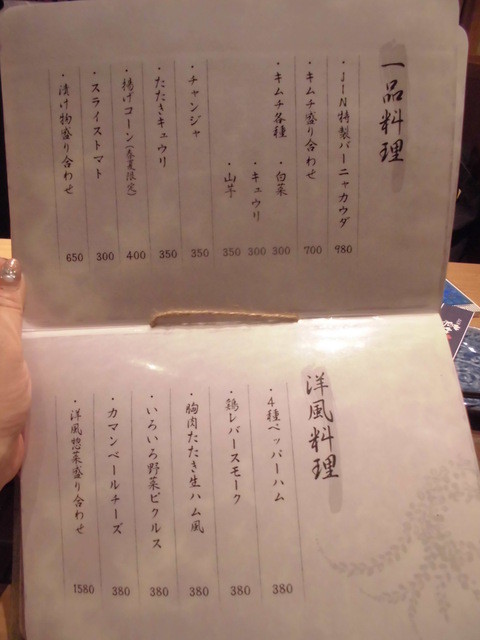 一品料理
・JIN特製バーニャカウダ 980
・キムチ盛り合わせ 700
・キムチ各種 ・白菜 300
・キュウリ 300
・山芋 350
・チャンジャ 350
・たたきキュウリ 350
・揚げコーン(春夏限定) 400
・スライストマト 300
・漬け物盛り合わせ 650
洋風料理
・4種ペッパーハム 380
・鶏レバースモーク 380
・胸肉たたき生ハム風 380
・いろいろ野菜ピクルス 380
・カマンベールチーズ 380
・洋風惣菜盛り合わせ 1580